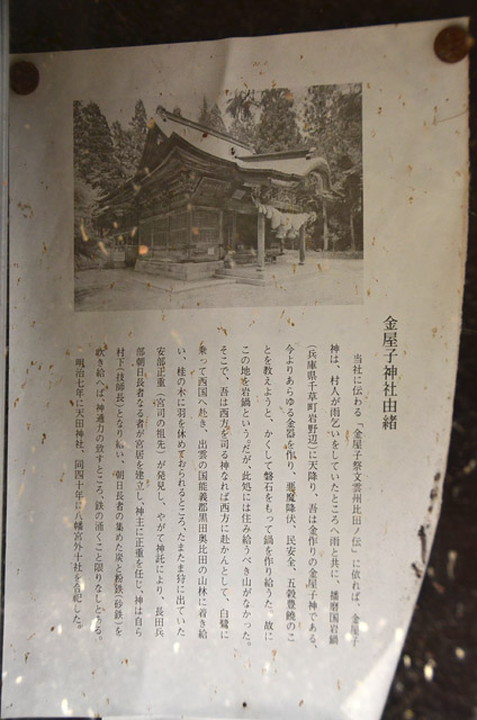 金屋子神社由緒
当社に伝わる「金屋子祭文雲州比田ノ伝」に依れば、金屋子
神は、村人が雨乞いをしていたところへ雨と共に、播磨国岩鍋
(兵庫県千草町岩野辺)に天降り、吾は金作りの金屋子神である、
今よりあらゆる金器を作り、悪魔降伏、民安全、五穀豊饒のこ
とを教えようと、かくして磐石をもって鍋を作り給うた。故に
この地を岩鍋という。だが、此処には住み給うべき山がなかった。
そこで、吾は西方を司る神なれば西方に赴かんとして、白鷺に
乗って西国へ赴き、出雲の国能義郡黒田奥比田の山林に着き給
い、桂の木に羽を休めておられるところ、たまたま狩に出ていた
安部正重(宮司の祖先)が発見し、やがて神託により、長田兵
部、朝日長者なる者が宮居を建立し、神主に正重を任じ、神は自ら
村下(技師長)となり給い、朝日長者の集めた炭と粉鉄(砂鉄)を
吹き給へば、神通力の放すところ、鉄の涌くこと限りなしとうる。
明治七年に天田神社、同四十年に八幡宮外十社を合祀した。